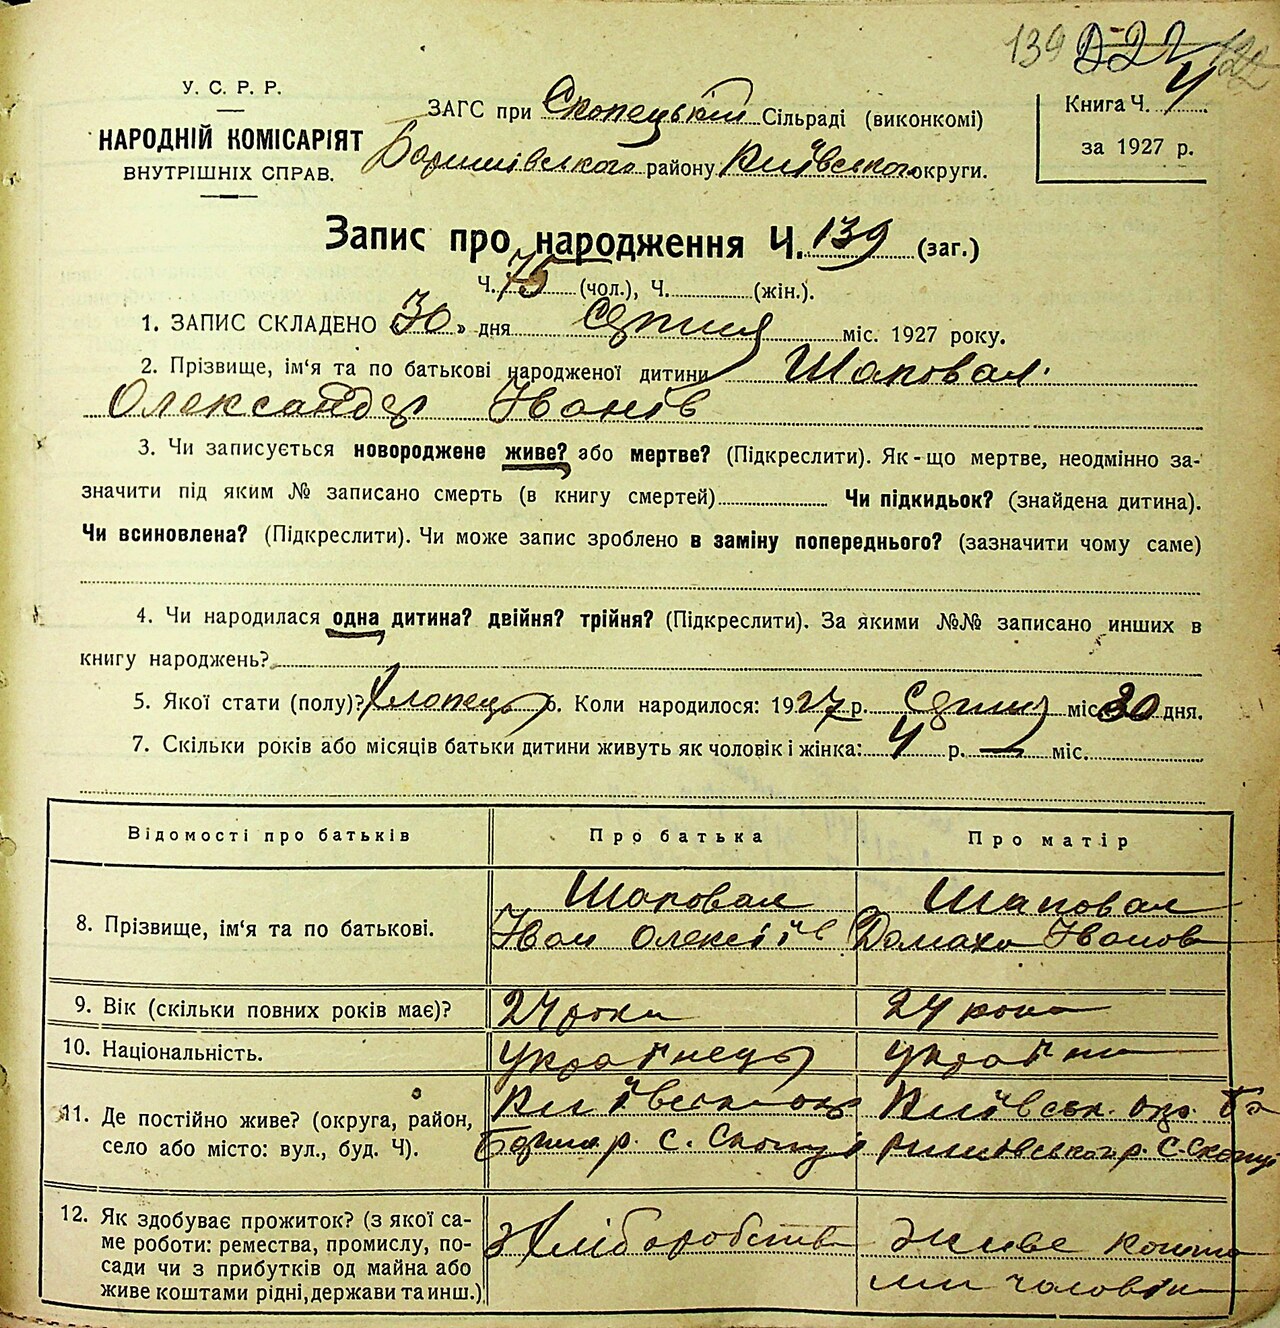 139 222 122
У. С. Р. Р.
НАРОДНІЙ КОМІСАРІЯТ
ВНУТРІШНІХ СПРАВ.
ЗАГС при Скопецькій Сільраді (виконкомі)
Баришівського району Київського округи.
Книга Ч. 4
за 1927 р.
Запис про народження Ч. 139 (заг.)
Ч. 75 (чол.), Ч. (жін.).
1. ЗАПИС СКЛАДЕНО 30 » дня Серпня міс. 1927 року.
2. Прізвище, ім'я та по батькові народженої дитини Шаповал
Олександер Іванів
3. Чи записується новороджене живе? або мертве? (Підкреслити). Як-що мертве, неодмінно за-
значити під яким № записано смерть (в книгу смертей) Чи підкидьок? (знайдена дитина).
Чи всиновлена? (Підкреслити). Чи може запис зроблено в заміну попереднього? (зазначити чому саме)
4. Чи народилася одна дитина? двійня? трійня? (Підкреслити). За якими №№ записано инших в
книгу народжень?
5. Якої стати (полу)? Хлопець 6. Коли народилося: 1927 р. Серпня міс. 30 дня.
7. Скільки років або місяців батьки дитини живуть як чоловік і жінка: 4 р. — міс.
Відомості про батьків Про батька Про матір
8. Прізвище, ім'я та по батькові.
Шаповал
Іван Олексіїв
Шаповал
Домаха Іванов
9. Вік (скільки повних років має)? 24 роки 24 роки
10. Національність. українець україн
11. Де постійно живе? (округа, район,
село або місто: вул., буд. Ч).
Київська окр
Бариш р. с. Скопці
Київськ. окр. Ба
ришівськ р. с. Скопці
12. Як здобуває прожиток? (з якої са-
ме роботи: ремества, промислу, по-
сади чи з прибутків од майна або
живе коштами рідні, держави та инш.)
з Хліборобства
живе кошта
ми чоловіка